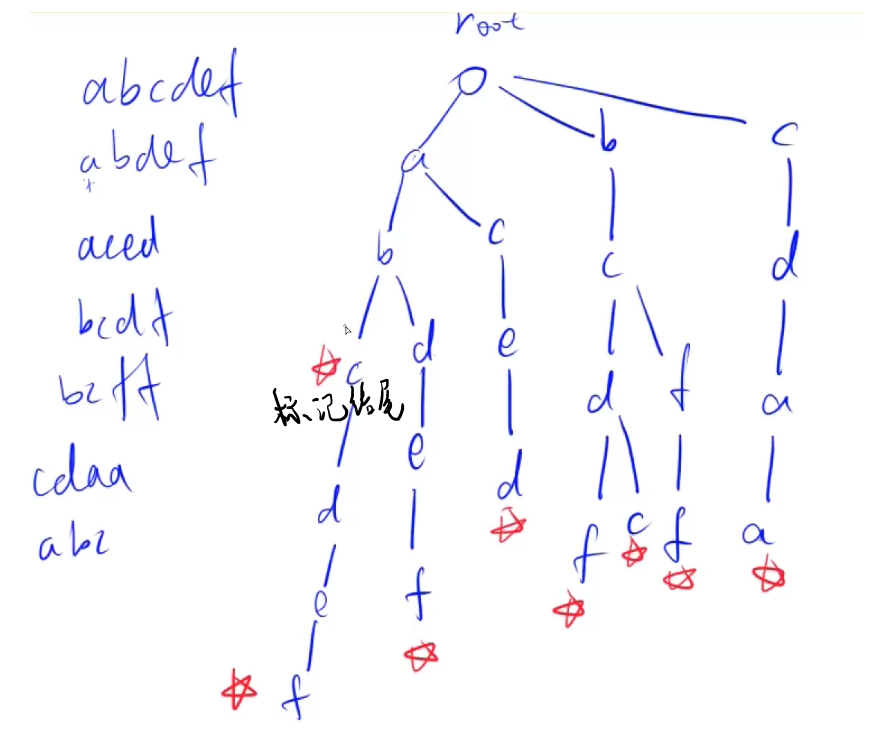 root
abcdef
abdef
aced
bcdf
bcff
cdaa
abc
a b c
b c c d
c d e d f a
标记结尾
d e d f c f a
e f
f